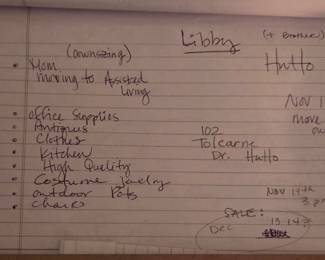 Libby (+ Brother)
(Downsizing) Hutto
• Mom
moving to Assisted
Living
Nov 1
move
• office Supplies
• Antiques
• Clothes
• Kitchen
• High Quality
• Costume Jewelry
• outdoor Pots
• chairs
102
Tolcarne
Dr. Hutto
Nov 14th
SALE:
Dec 13 14